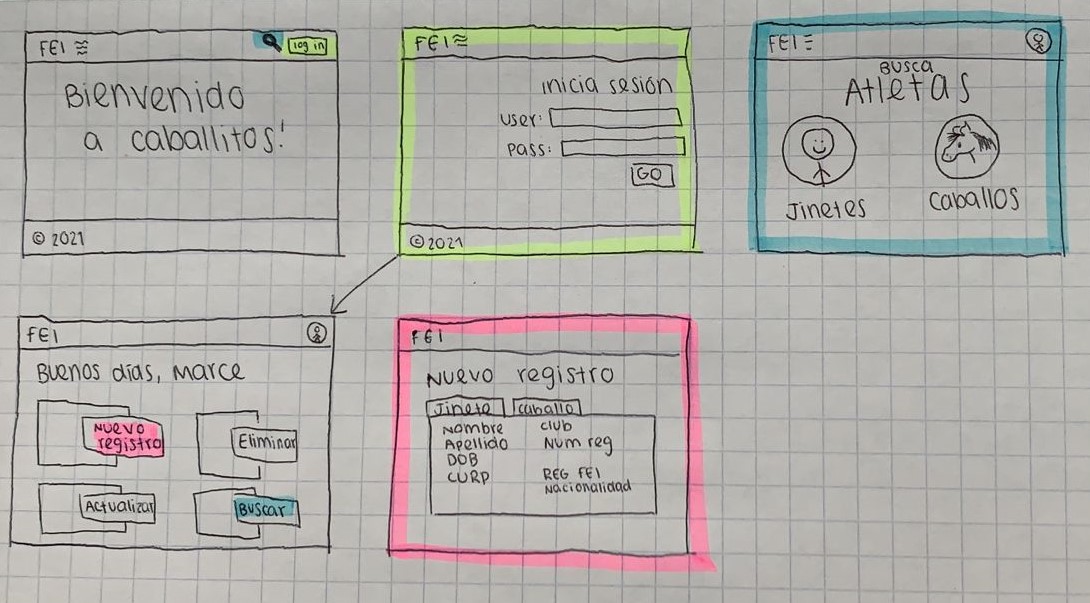 FEI
log in
Bienvenido
a caballitos!
© 2021
FEI
inicia sesión
user:
pass:
GO
© 2021
FEI
Busca
Atletas
Jinetes
caballos
FEI
Buenos días, Marce
Nuevo
registro
Eliminar
Actualizar
Buscar
FEI
Nuevo registro
Jinete caballo
Nombre club
Apellido Num reg
DOB
CURP REG FEI
Nacionalidad